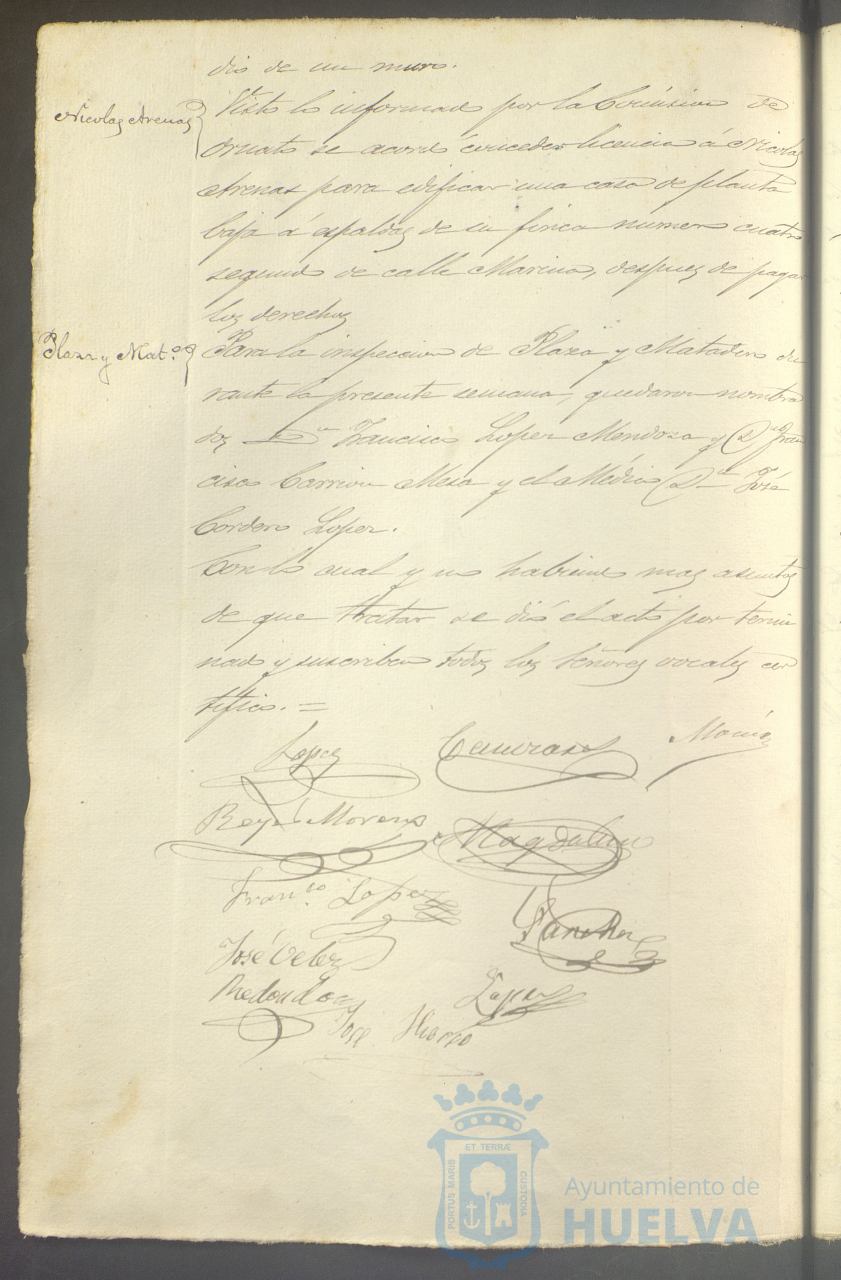 dio de un muro.
Nicolas Arenas
Visto lo informado por la Comision de
ornato se acordó conceder licencia á Nicolas
Arenas para edificar una casa de planta
baja á espaldas de su finca numero cuatro
segundo de calle Marina, despues de pagar
los derechos
Plaza y Mat.º
Para la inspeccion de Plaza y Matadero du
rante la presente semana, quedaron nombra
dos Dn Francisco Lopez Mendoza y Dn Fran
cisco Carrion Mesa y el Médico Dn José
Cordero Lopez.
Con lo cual y no habiendo mas asuntos
de que tratar se dió el acto por termi
nado y suscriben todos los Señores vocales cer
tifico. =
Lopez
Reyes Moreno
Magdaleno
Franco. Lopez
Sanchez
José Velez
Redondo
Lopez
José
ET TERRÆ
PORTUS MARIS
CUSTODIA
Ayuntamiento de
HUELVA